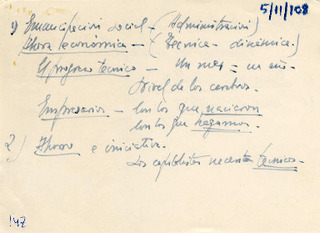 5/11/108
1) Emancipación social - (Administración)
Ahora económica - (Técnica - dinámica.)
El progreso técnico - Un mes = un año.
Nivel de los centros.
Empresarios - con los que nacieron
con los que hagamos.
2) Ahorro e iniciativa.
Los capitalistas necesitan técnicos.
147